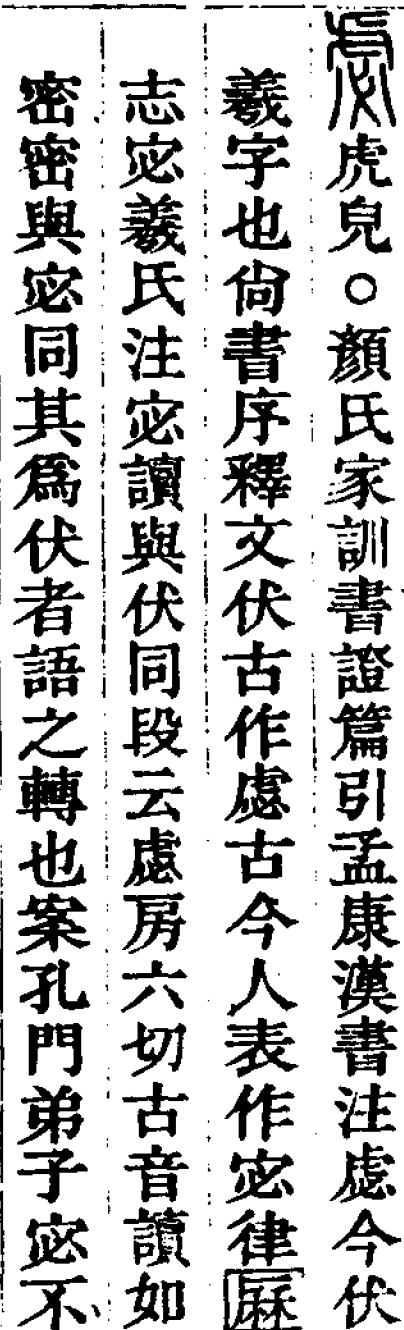 虙虎皃○顏氏家訓書證篇引孟康漢書注虙今伏
羲字也尙書序釋文伏古作虙古今人表作宓律厤
志宓羲氏注宓讀與伏同段云虙房六切古音讀如
密密與宓同其爲伏者語之轉也案孔門弟子宓不